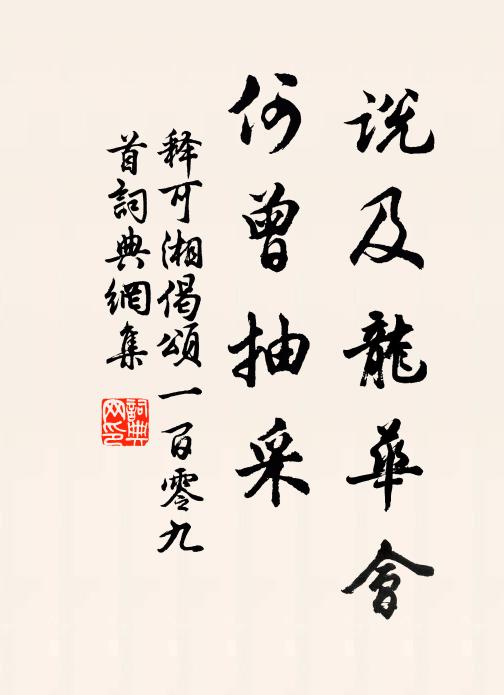 说及龍華會
何曾抽采
释可湘偈頌一百零九
首詞典網集
詞典
网印